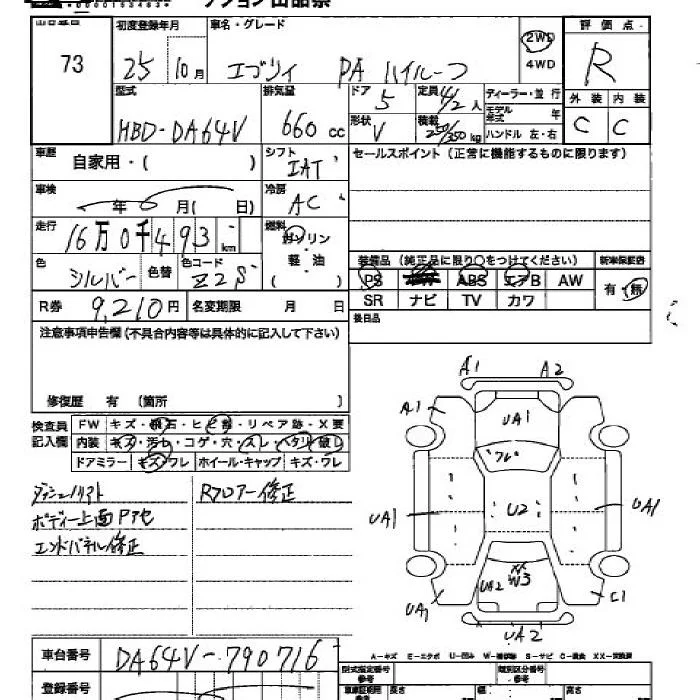 73
初度登録年月
25 10月
車名・グレード
エブリイ PA ハイルーフ
2WD
4WD
評価点
R
型式
HBD-DA64V
排気量
660 cc
ドア
5
定員
4/2人
ディーラー・並行
モデル年式 年
ハンドル 左・右
形状
V
積載
250/350kg
外装 内装
C C
車歴
自家用・( )
シフト
IAT
セールスポイント(正常に機能するものに限ります)
車検
年 月( 日)
冷房
AC
走行
16万0千493 km
燃料
ガソリン
軽・油
( )
色
シルバー
色替
色コード
Z2S
装備品(純正品に限り○をつけてください)
新車保証書
PS ABS エアB AW
SR ナビ TV カワ
有・無
R券 9,210円
名変期限 月 日
後日品
注意事項申告欄(不具合内容等は具体的に記入して下さい)
修復歴 有 (箇所 )
検査員
記入欄
FW キズ・飛石・ヒビ割・リペア跡・X要
内装 キズ・汚れ・コゲ・穴・スレ・ヘタリ・破レ
ドアミラー キズ・ワレ ホイール・キャップ キズ・ワレ
ダッシュノリフト
ボディー上面Pアセ
エンドパネル修正
Rフロアー修正
A1 A2
A1
UA1
フレ
UA1
U2
UA1
UA2
W3
UA1
C1
UA2
A-キズ E-エクボ U-凹み
車台番号
DA64V-790716
登録番号
型式指定番号
参考
類別区分番号
参考
長さ 幅 高さ